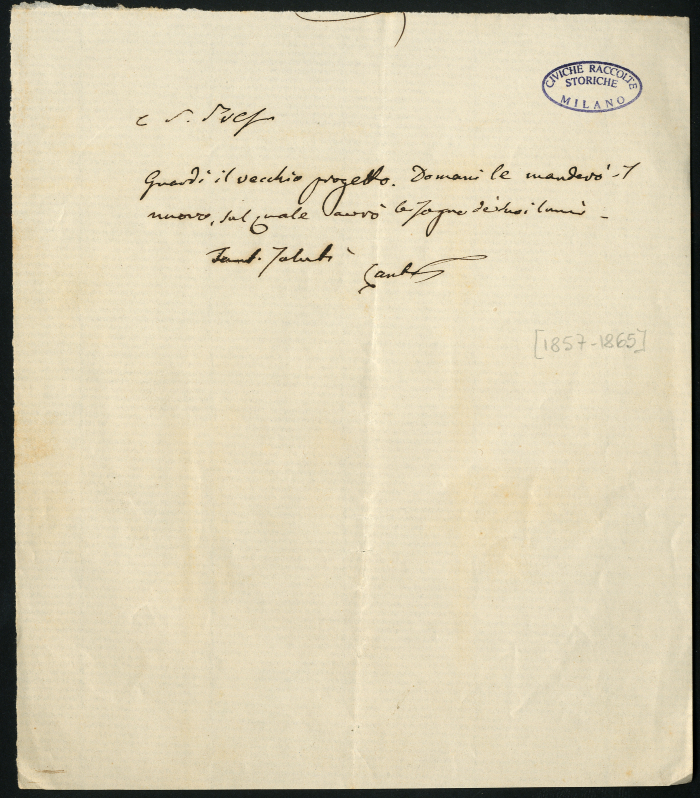 CIVICHE RACCOLTE
STORICHE
MILANO
C S. Pref
Guardi il vecchio progetto. Domani le manderò il
nuovo, sul quale avrò bisogno de' suoi lumi –
Tanti saluti
Cantù
[1857-1865]